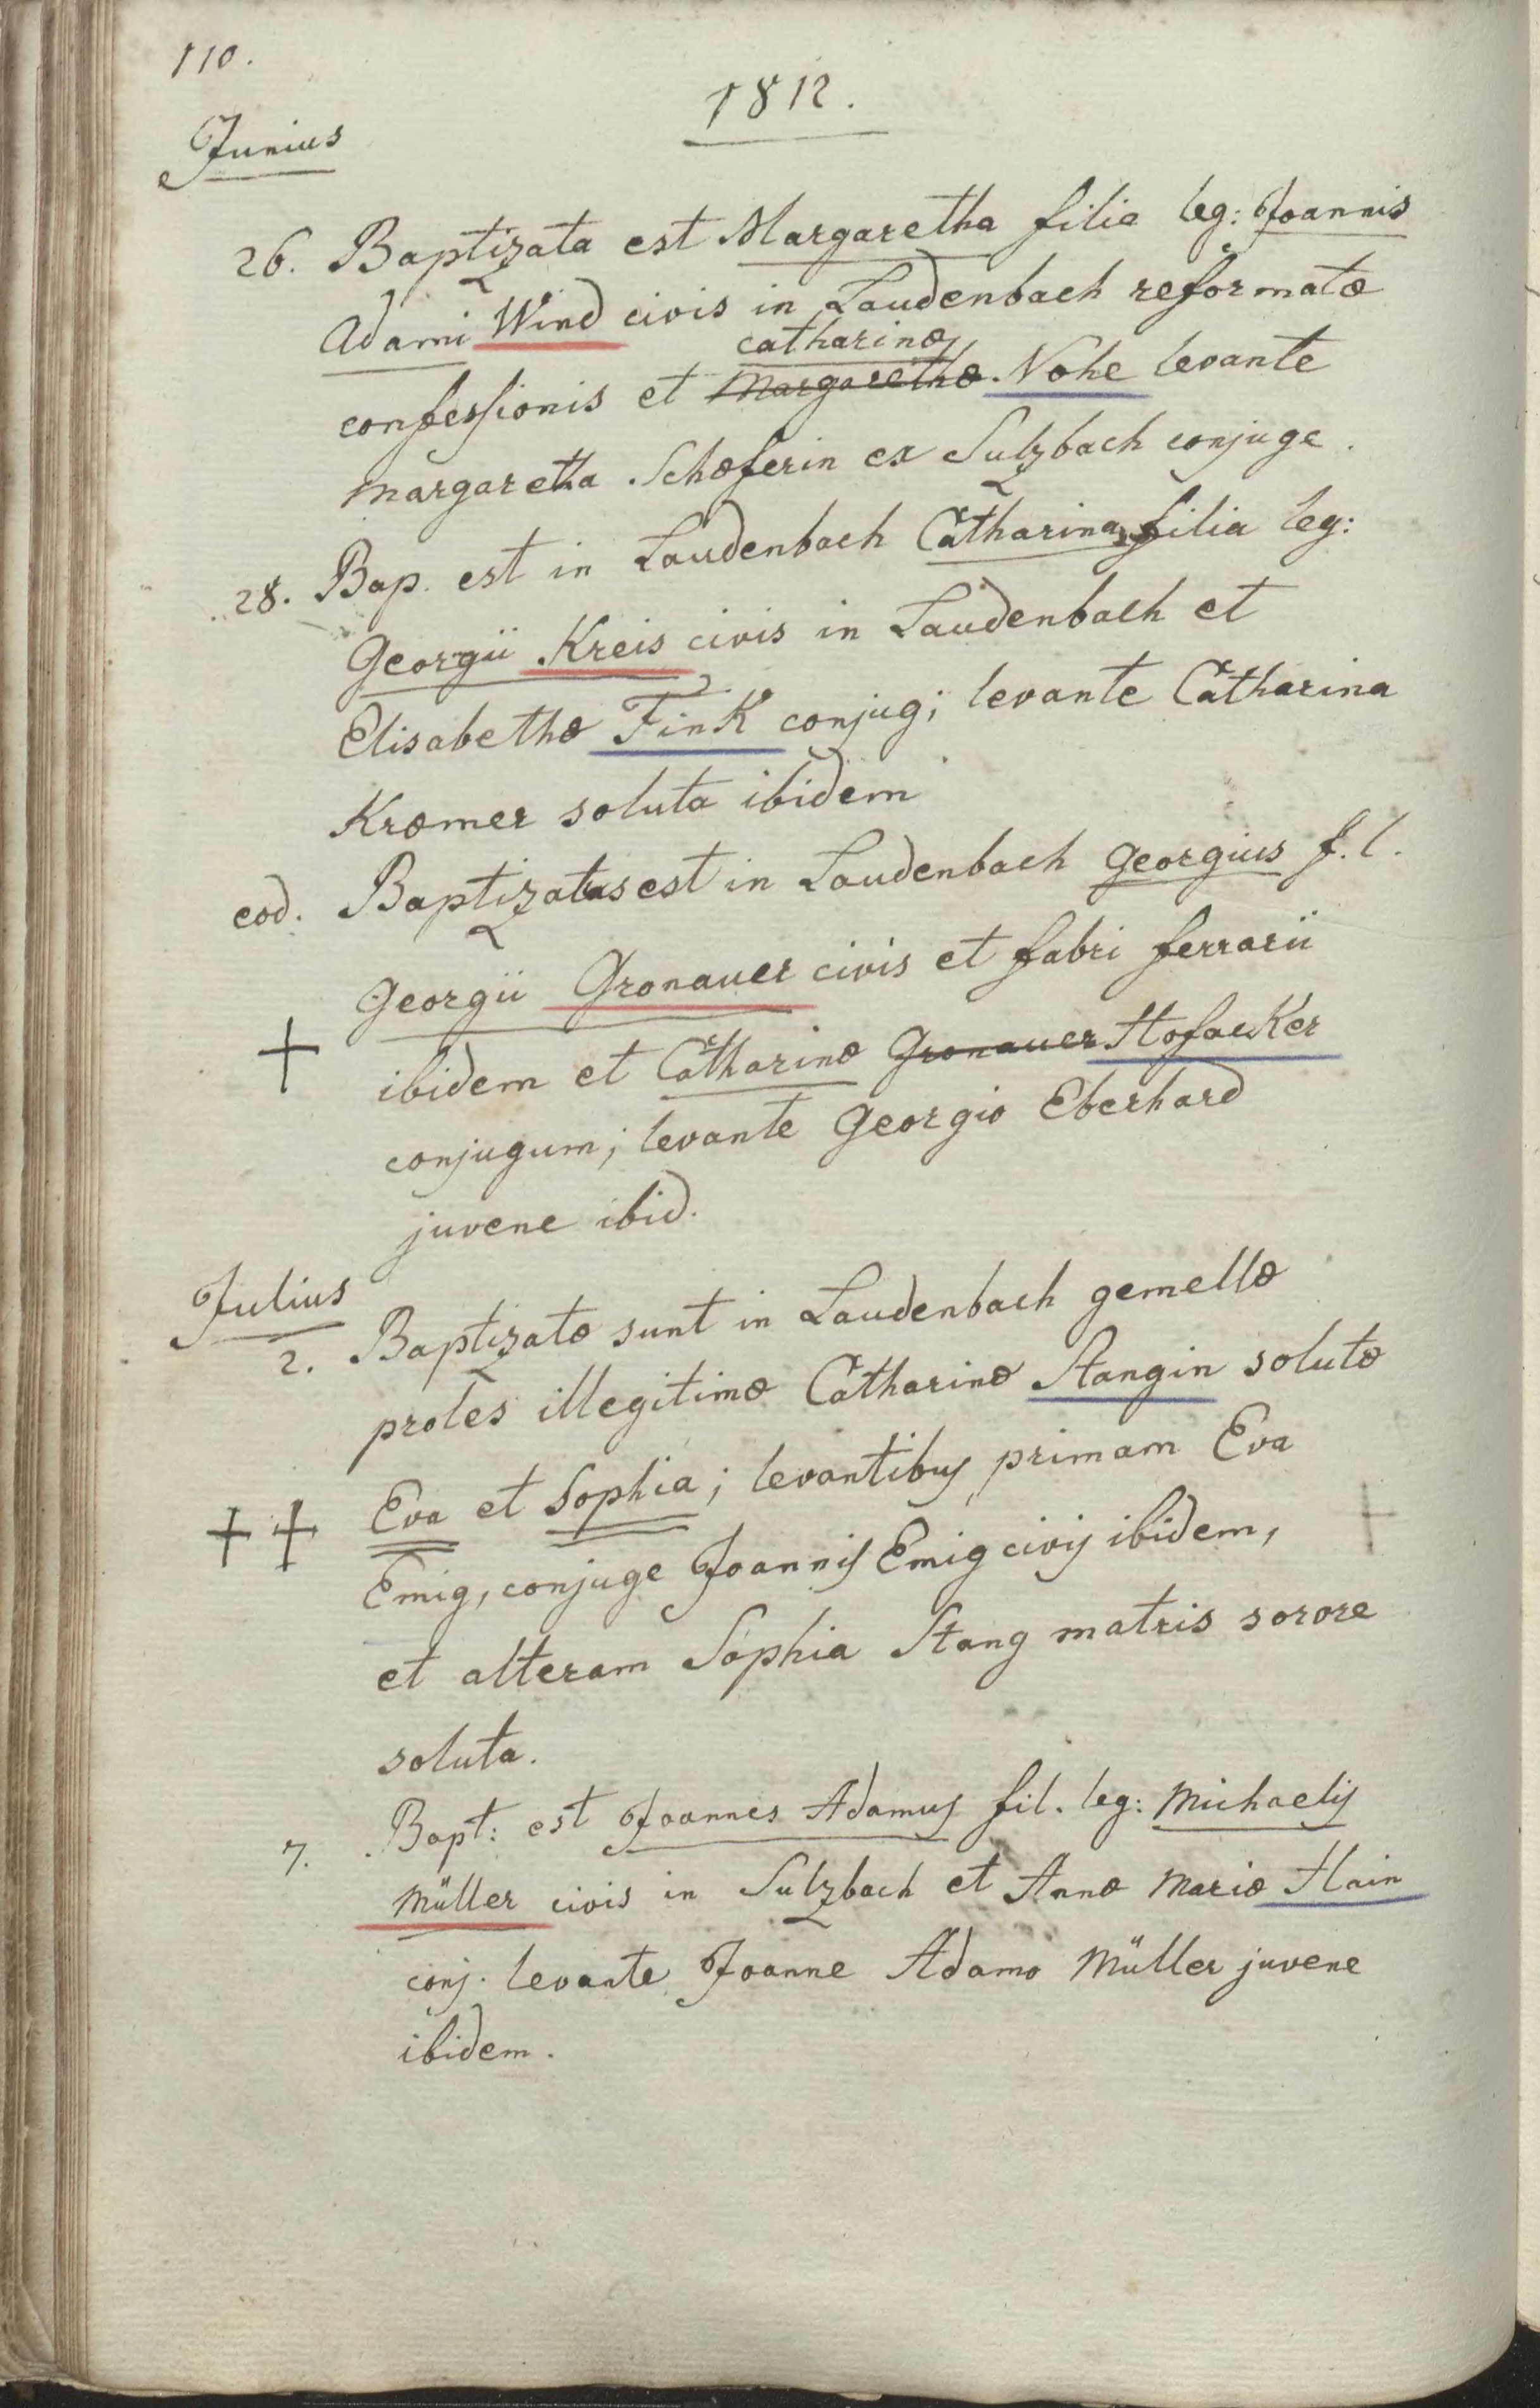 110.
1812.
Junius
26. Baptizata est Margaretha filia leg: Joannis
Adami Wind civis in Laudenbach reformatæ
catharinæ
confessionis et Margarethæ Nohe levante
Margaretha Schæferin ex Sulzbach conjuge.
28. Bap. est in Laudenbach Catharina filia leg:
Georgii Kreis civis in Laudenbach et
Elisabethæ Fink conjug; levante Catharina
Kræmer soluta ibidem
eod. Baptizatus est in Laudenbach Georgius f. l.
Georgii Gronauer civis et fabri ferrarii
ibidem et Catharinæ Gronauer Hofacker
conjugum; levante Georgio Eberhard
juvene ibid.
Julius
2. Baptizatæ sunt in Laudenbach gemellæ
proles illegitimæ Catharinæ Stangin solutæ
Eva et Sophia; levantibus primam Eva
Emig, conjuge Joannis Emig civis ibidem,
et alteram Sophia Stang matris sorore
soluta.
7. Bapt: est Joannes Adamus fil. leg: Michaelis
Müller civis in Sulzbach et Annæ Mariæ Hain
conj. levante Joanne Adamo Müller juvene
ibidem.